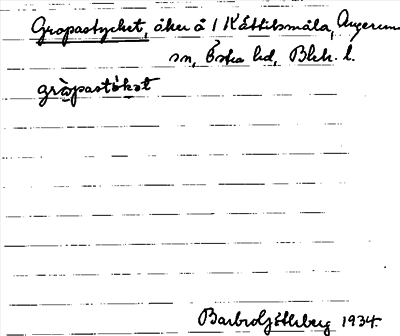 Gropastycket, åker å 1 Kättilsmåla, Augerum
sn, Östra hd, Blek. l.
gròpastỏkət
Barbro Göthberg 1934.